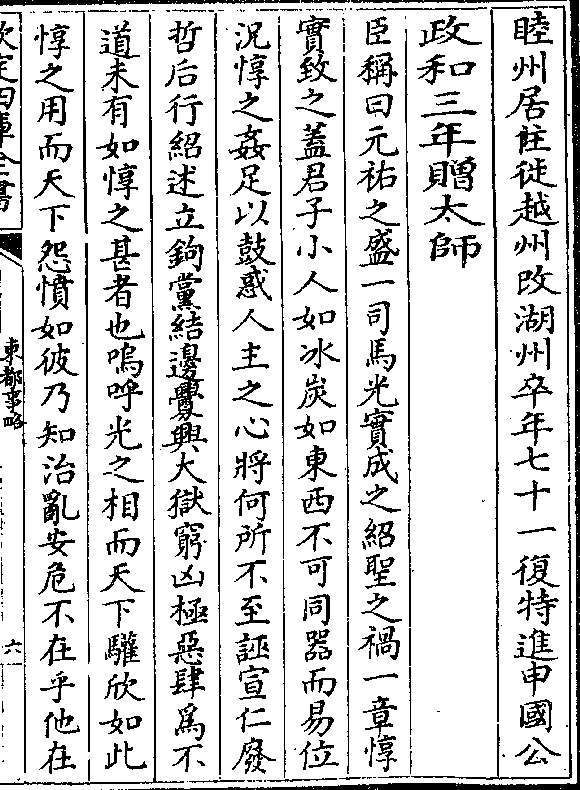 睦州居住徙越州改湖州卒年七十一復特進申國公
政和三年贈太師
臣稱曰元祐之盛一司馬光實成之紹聖之禍一章惇
實致之蓋君子小人如冰炭如東西不可同器而易位
況惇之姦足以鼓惑人主之心將何所不至誣宣仁廢
哲后行紹述立鉤黨結邊釁興大獄窮凶極惡肆為不
道未有如惇之甚者也嗚呼光之相而天下驩欣如此
惇之用而天下怨憤如彼乃知治亂安危不在乎他在
欽定四庫全書
東都事略
六